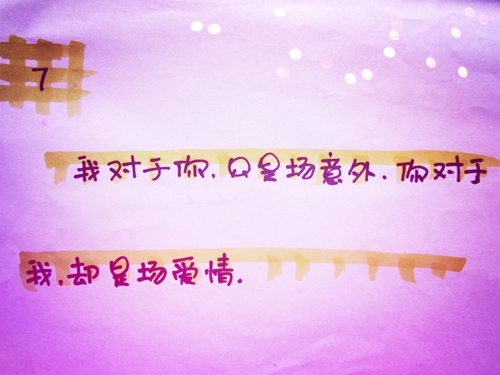 7
我对于你.只是场意外.你对于
我.却是场爱情.